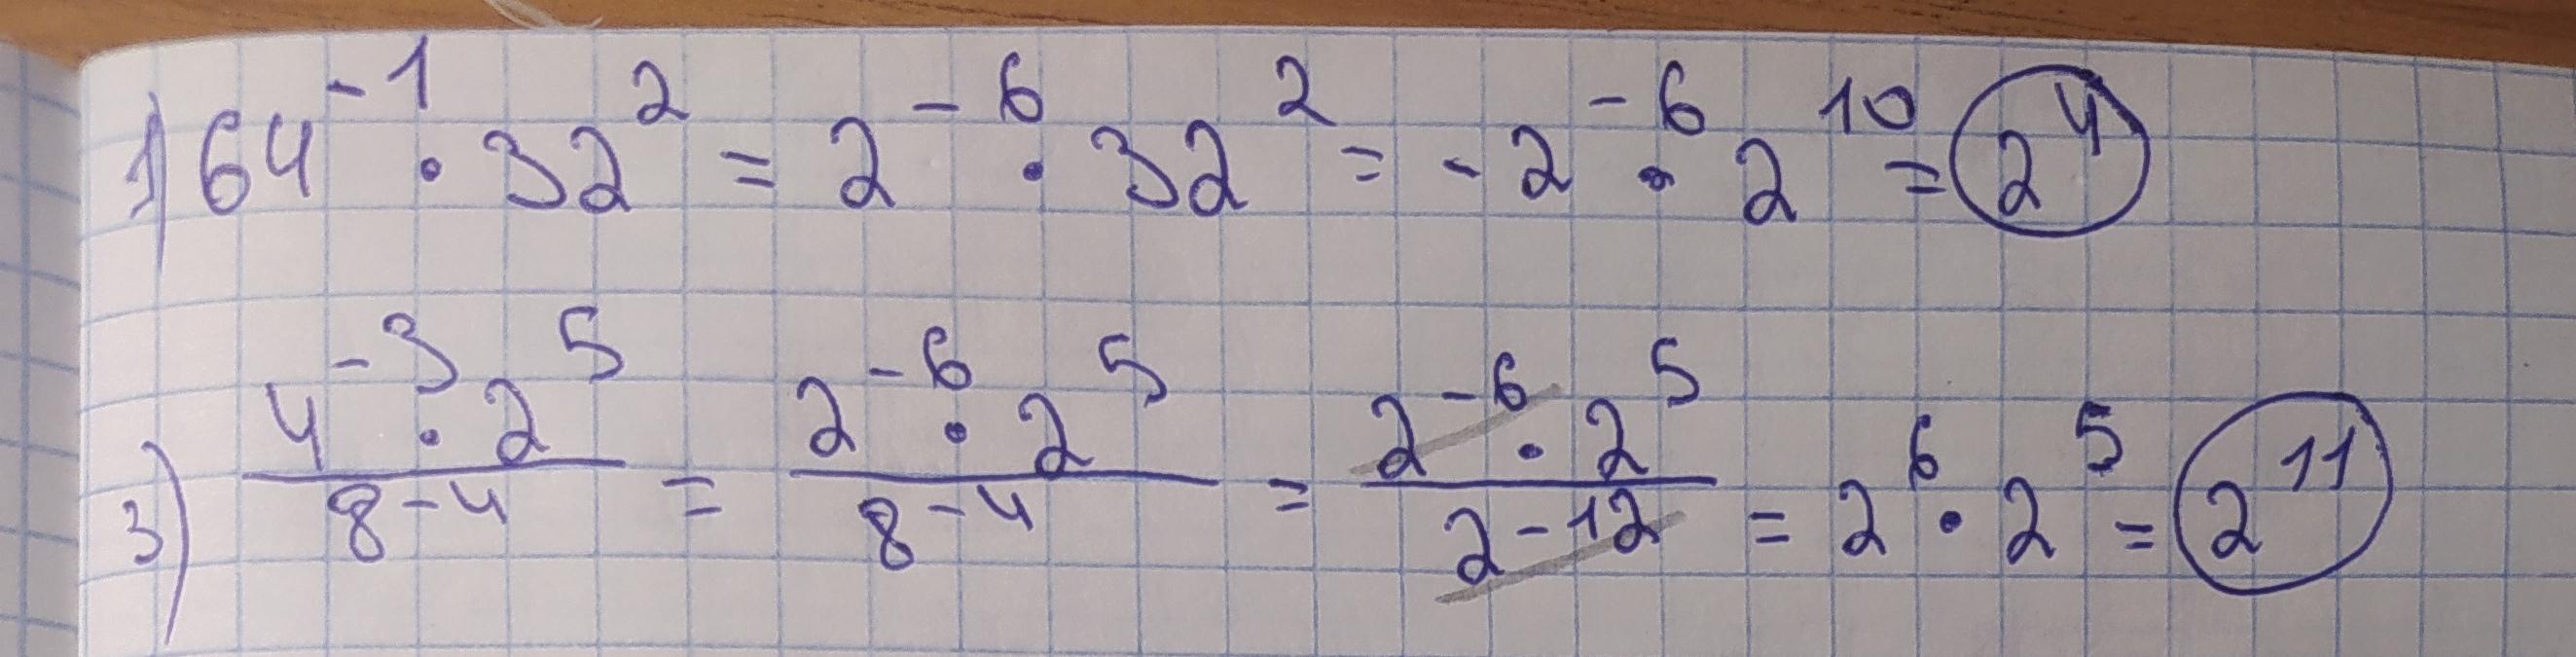 1) 64⁻¹ · 32² = 2⁻⁶ · 32² = -2⁻⁶ · 2¹⁰ = 2⁴
3) (4⁻³ · 2⁵)/(8⁻⁴) = (2⁻⁶ · 2⁵)/(8⁻⁴) = (2⁻⁶ · 2⁵)/(2⁻¹²) = 2⁶ · 2⁵ = 2¹¹